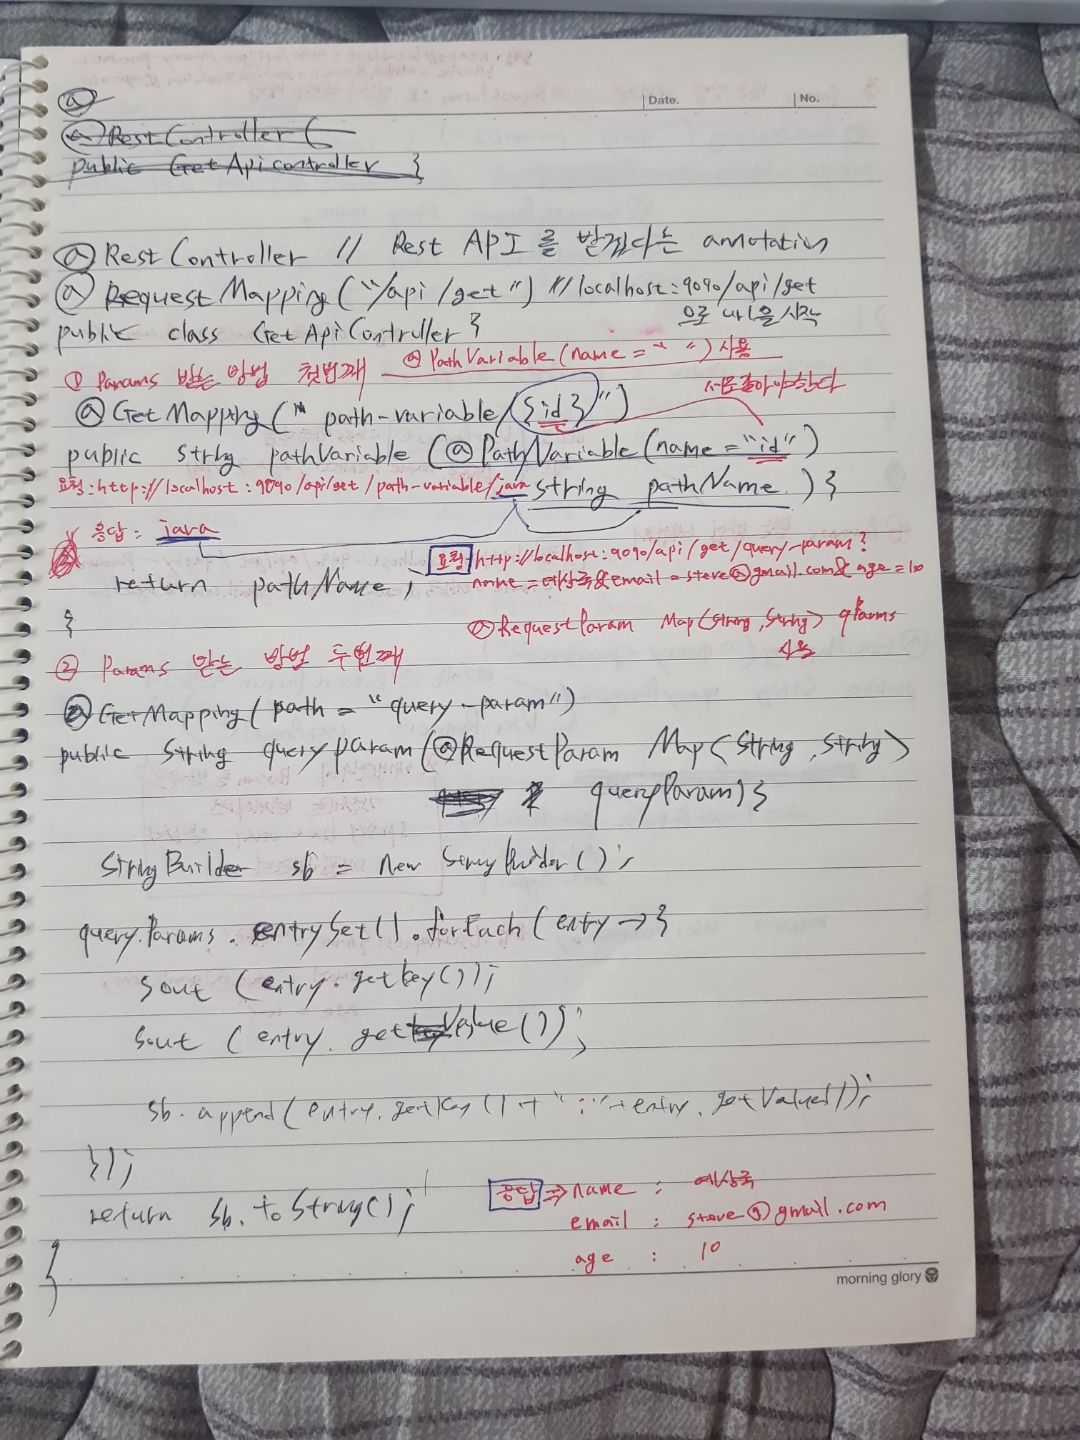 @
Date. No.
@RestController {
public GetApi controller }
@RestController // Rest API를 받겠다는 annotation
@RequestMapping("/api/get") // localhost:9090/api/get
으로 나을시작
public class GetApiController }
① Params 받는 방법 첫번째 @PathVariable(name=" ") 사용
서로같아야한다
@GetMapping("path-variable/{id}")
public string pathVariable (@PathVariable(name="id")
요청:http://localhost:9090/api/get/path-variable/java string pathName) }
응답: java
요청:http://localhost:9090/api/get/query-param?
return pathName; name=예상국&email=steve@gmail.com& age=10
{
@RequestParam Map<String,String> qParms
사용
② Params 받는 방법 두번째
@GetMapping(path = "query-param")
public String queryparam (@RequestParam Map<String, String>
queryParam) }
StringBuilder sb = new StringBuilder();
query.Params. entrySet().forEach(entry->{
sout (entry.getkey());
sout (entry. getValue());
sb. append(entry.getKey()+":"+entry. getValue());
});
return sb.toString();
응답 => name : 예상국
email : steve@gmail.com
age : 10
}
morning glory